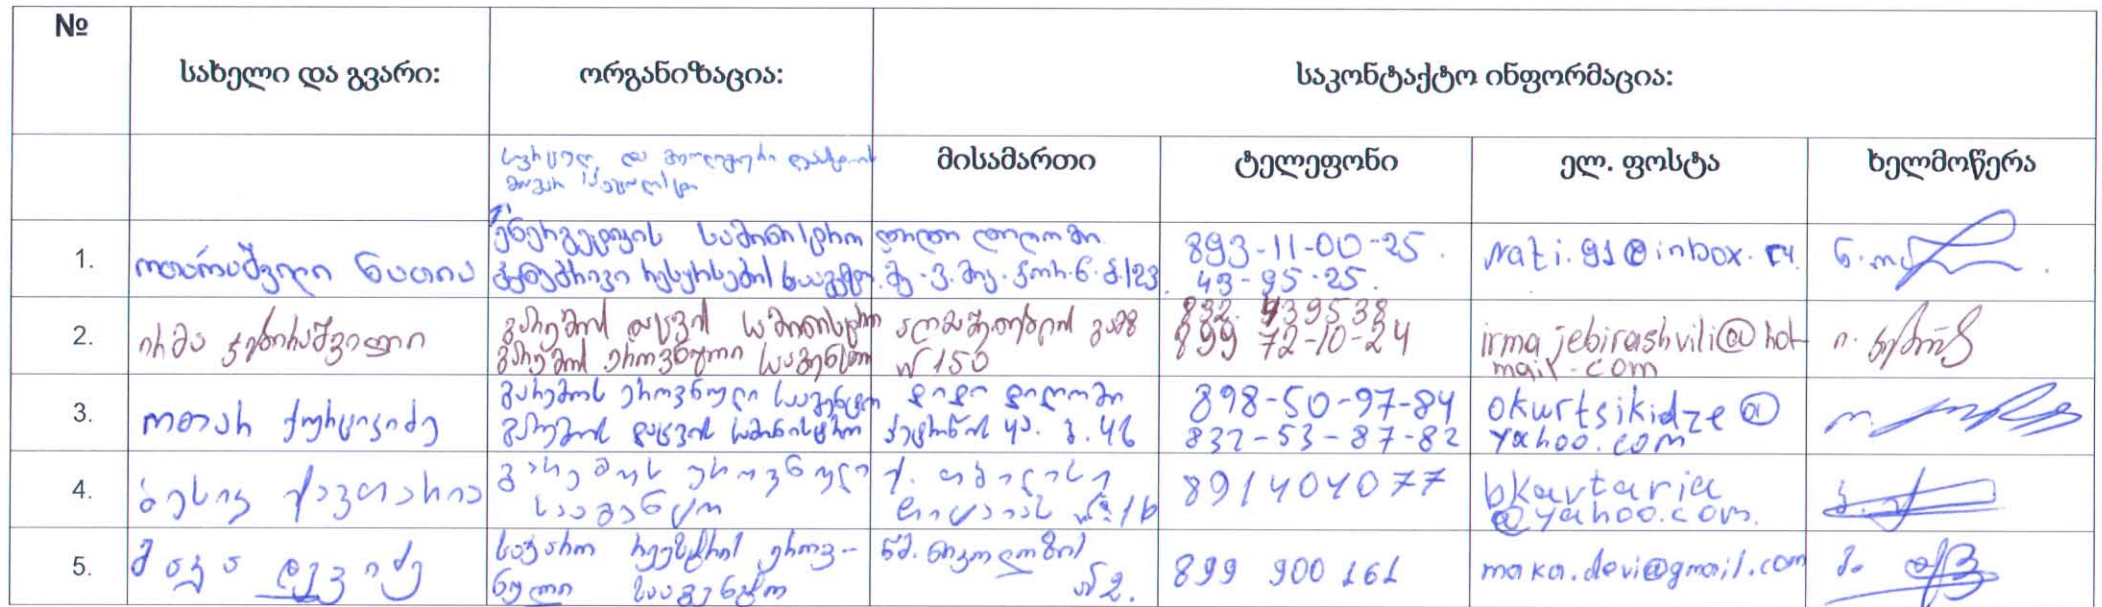 №
სახელი და გვარი:
ორგანიზაცია:
საკონტაქტო ინფორმაცია:
და
მისამართი
ტელეფონი
ელ. ფოსტა
ხელმოწერა
1.
ოთარაშვილი ნათია
ენერგეტიკის სამინისტრო
ბუნებრივი რესურსების სააგენტო
დიდი დიღომი
893-11-00-25.
43-95-25.
nati.91@inbox.ru
2.
ირმა ჯებირაშვილი
გარემოს დაცვის სამინისტრო
გარემოს ეროვნული სააგენტო
აღმაშენებლის გამზ
№150
832. 439538
899 72-10-24
irma_jebirashvili@hot
mail.com
3.
ოთარ ქურციკიძე
გარემოს ეროვნული სააგენტო
გარემოს დაცვის სამინისტრო
დიდი დიღომი
898-50-97-84
832-53-87-82
okurtsikidze@
yahoo.com
4.
ბესიკ ქავთარია
გარემოს ეროვნული
სააგენტო
ქ. თბილისი
891404077
bkavtaria
@yahoo.com.
5.
მაკა დევიძე
საჯარო რეესტრის ეროვ-
ნული სააგენტო
წმ. ნიკოლოზის
№2.
899 900 161
maka.devi@gmail.com